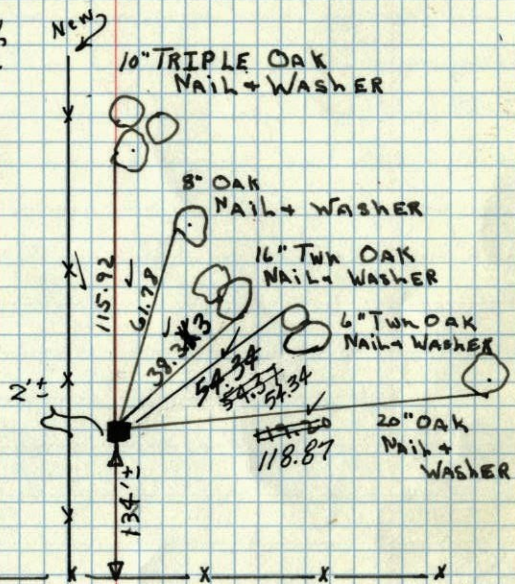 New
10" TRIPLE OAK
NAIL + WASHER
8" OAK
NAIL + WASHER
16" TWN OAK
NAIL + WASHER
6" TWN OAK
NAIL + WASHER
20" OAK
NAIL +
WASHER
115.92
61.78
38.33
54.34
54.34
118.87
2'±
134'±